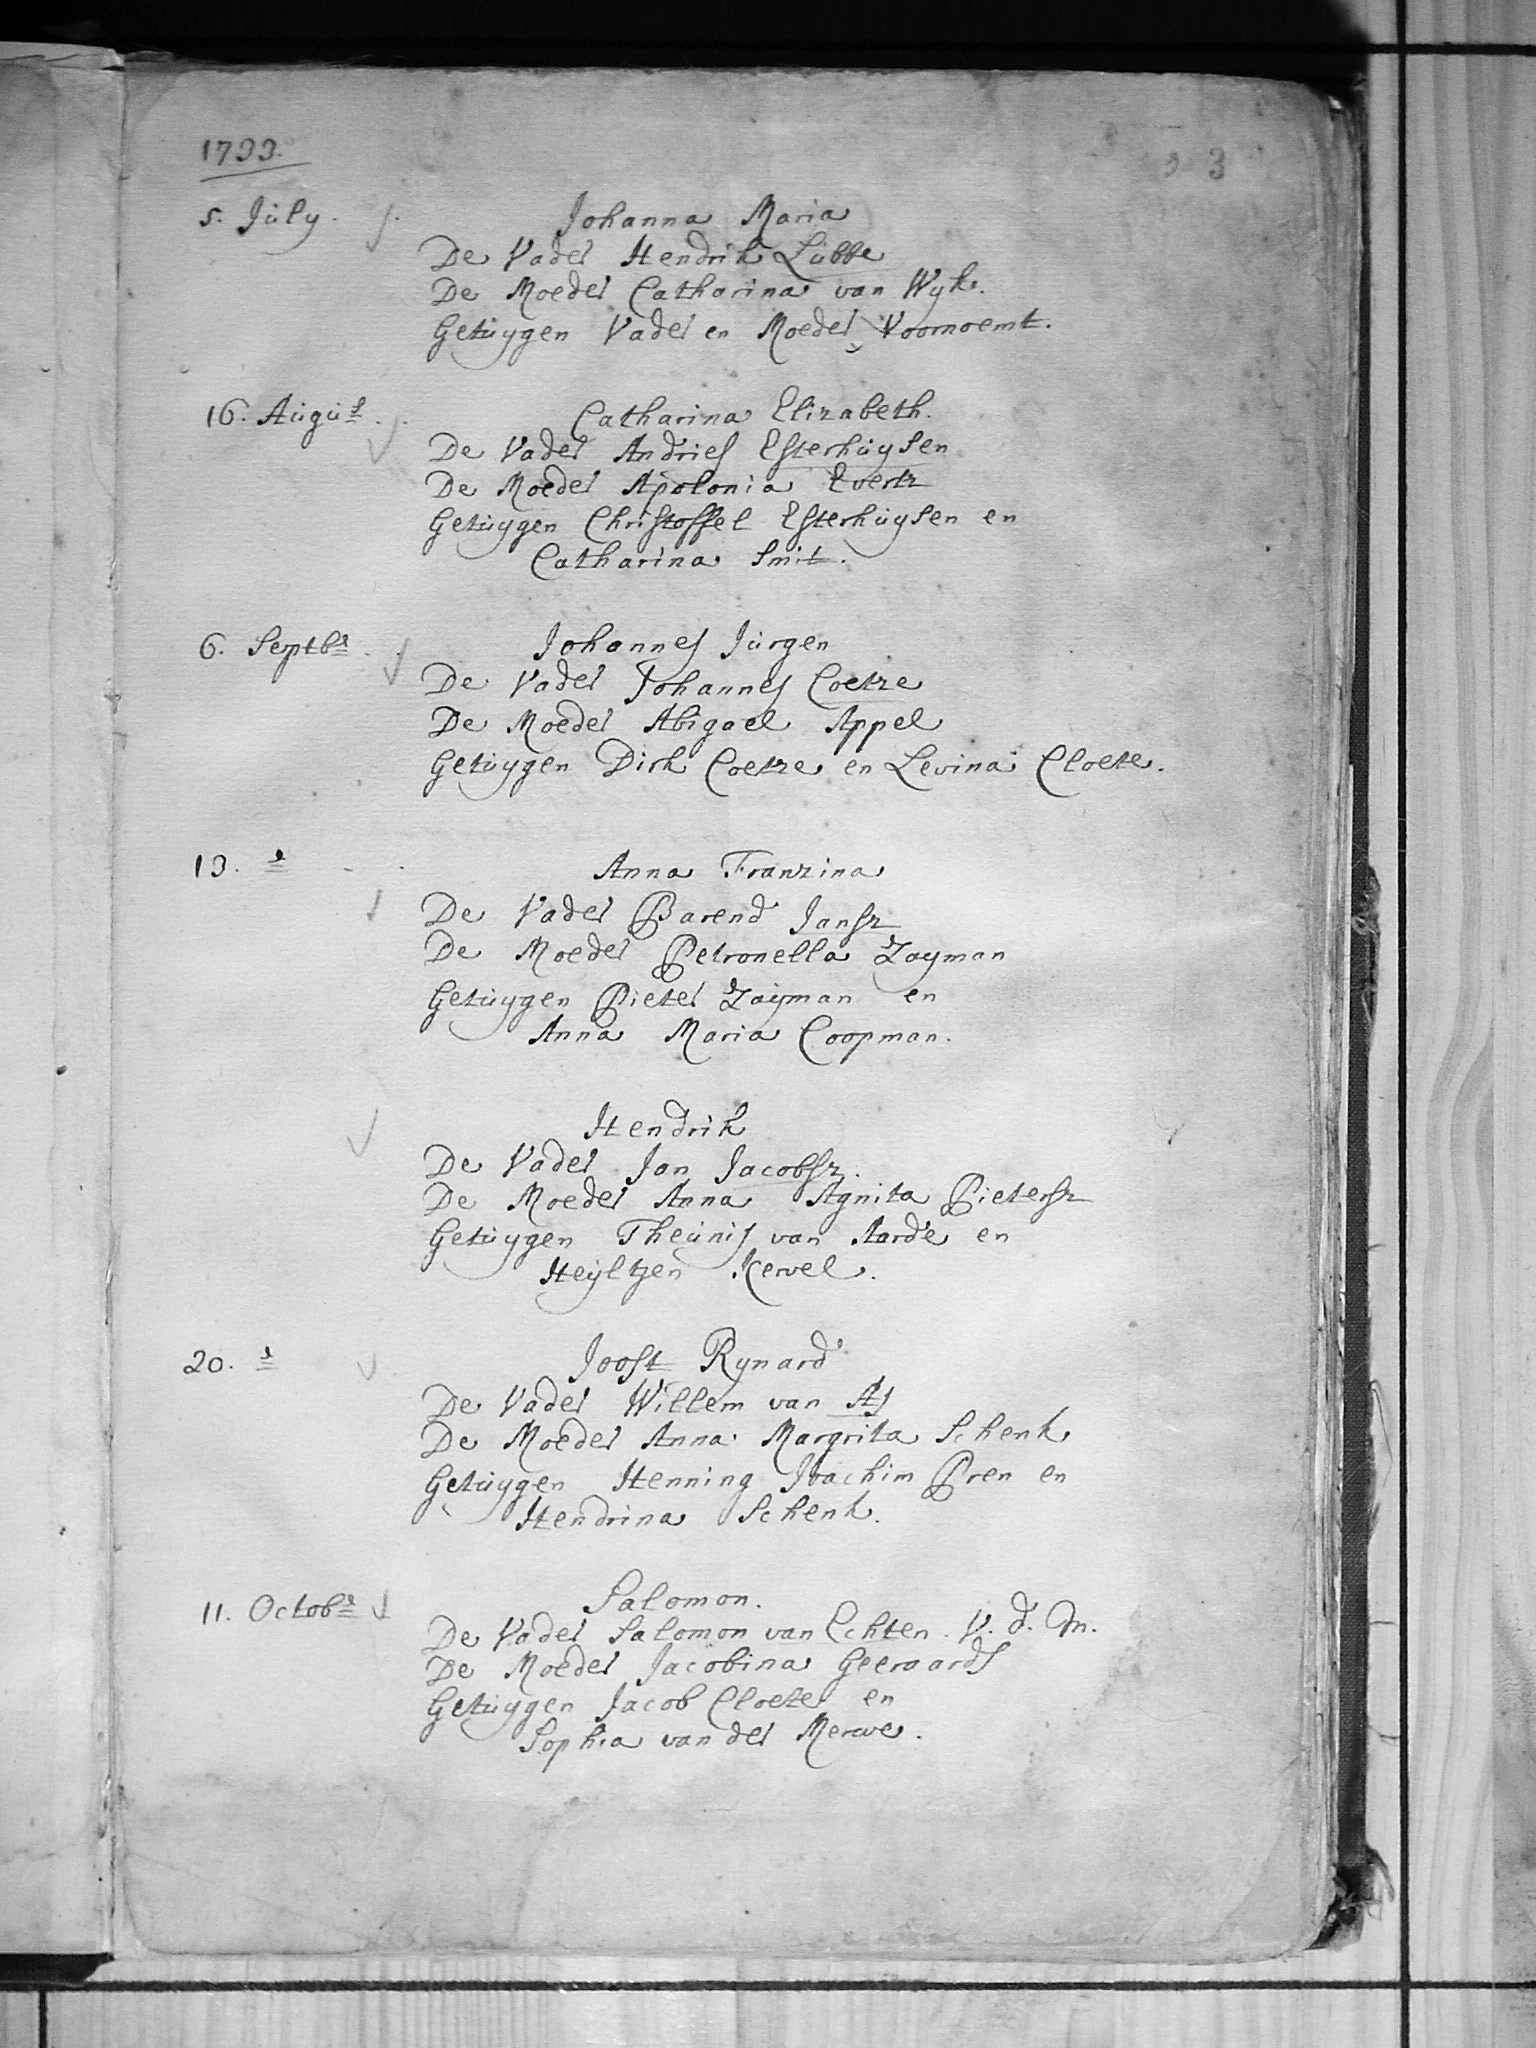 1733.
3
5. July.
Johanna Maria
De Vader Hendrik Lübbe
De Moeder Catharina van Wyk.
Getüygen Vader en Moeder Voornoemt.
16. Augüst
Catharina Elizabeth.
De Vader Andries Esterhüysen
De Moeder Apolonia Evertz
Getüygen Christoffel Esterhüysen en
Catharina Smit.
6. Septbr
Johannes Jürgen
De Vader Johannes Coetze
De Moeder Abigael Appel
Getüygen Dirk Coetze en Levina Cloete.
13. "
Anna Franzina
De Vader Barend Jansz
De Moeder Petronella Zayman
Getüygen Pieter Zayman en
Anna Maria Coopman.
Hendrik
De Vader Jan Jacobsz.
De Moeder Anna Agnita Pietersz
Getüygen Theünis van Aarde en
Heyltjen Kervel.
20. "
Joost Rynard
De Vader Willem van As
De Moeder Anna Margrita Schenk
Getüygen Henning Joachim Pren en
Hendrina Schenk.
11. Octobr
Salomon.
De Vader Salomon van Echten. V. d. M.
De Moeder Jacobina Geeraards
Getüygen Jacob Cloete en
Sophia van der Merwe.